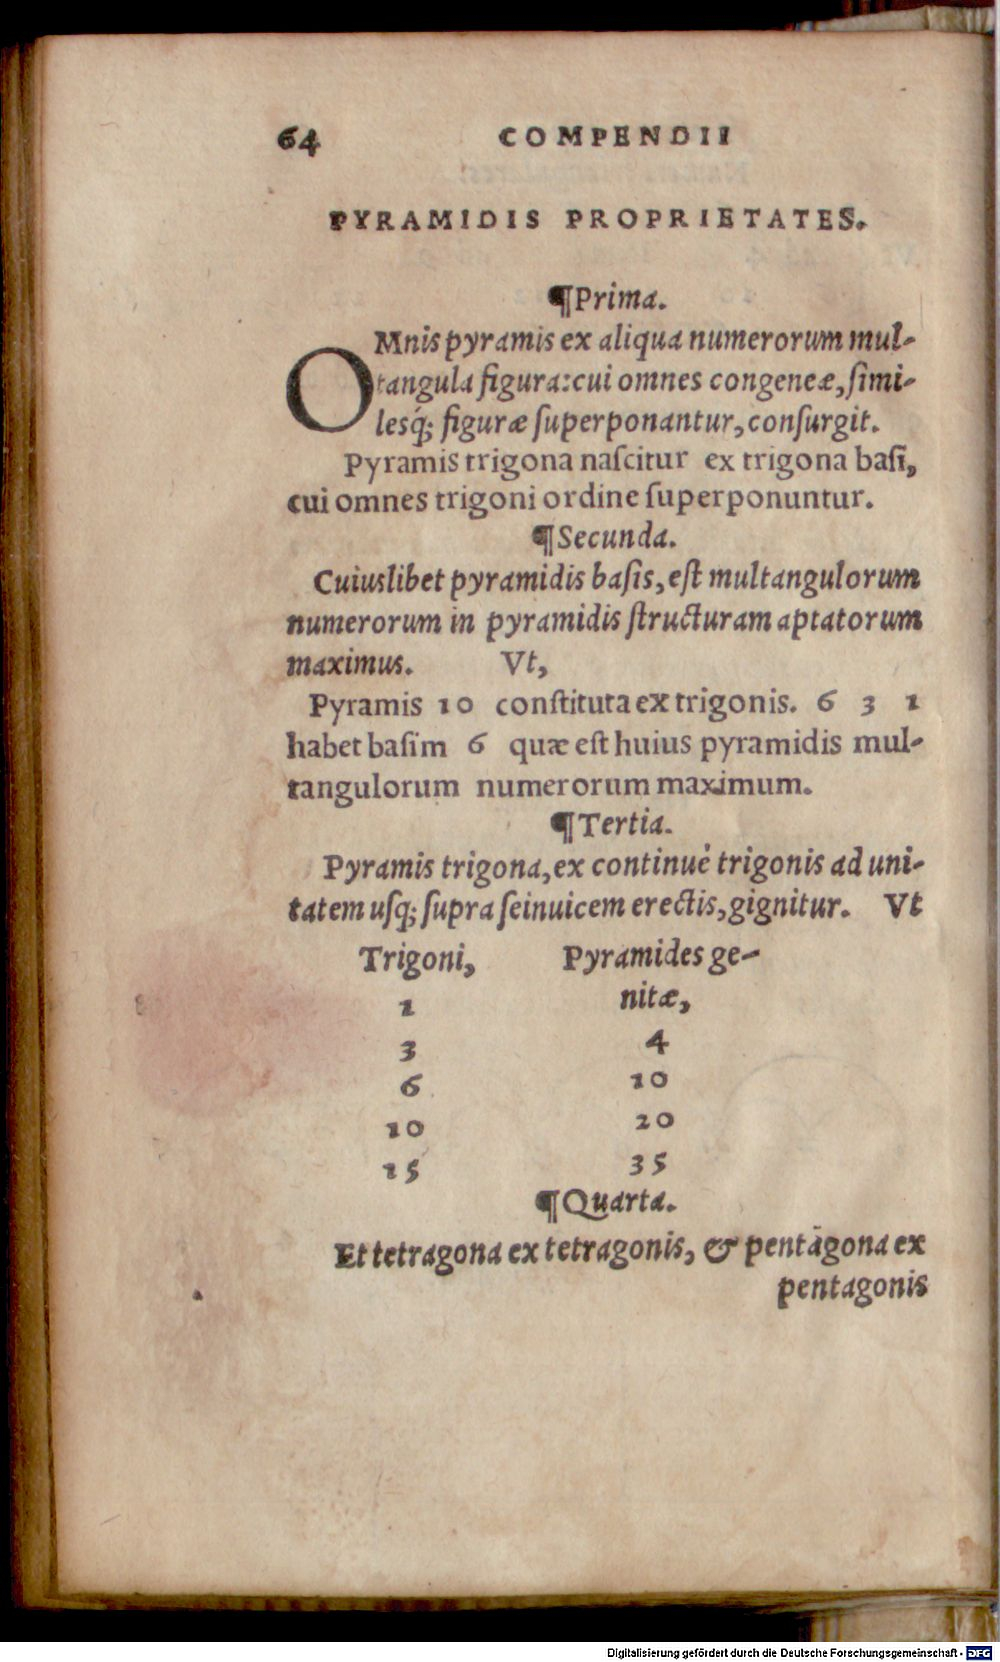 64 COMPENDII
PYRAMIDIS PROPRIETATES.
¶Prima.
OMnis pyramis ex aliqua numerorum mul-
tangula figura: cui omnes congeneæ, ſimi-
lesq́; figuræ ſuperponantur, conſurgit.
Pyramis trigona naſcitur ex trigona baſi,
cui omnes trigoni ordine ſuperponuntur.
¶Secunda.
Cuiuslibet pyramidis baſis, eſt multangulorum
numerorum in pyramidis ſtructuram aptatorum
maximus. Vt,
Pyramis 10 conſtituta ex trigonis. 6 3 1
habet baſim 6 quæ eſt huius pyramidis mul-
tangulorum numerorum maximum.
¶Tertia.
Pyramis trigona, ex continuè trigonis ad uni-
tatem uſq; ſupra ſeinuicem erectis, gignitur. Vt
Trigoni, Pyramides ge-
1 nitæ,
3 4
6 10
10 20
15 35
¶Quarta.
Et tetragona ex tetragonis, & pentagona ex
pentagonis
Digitalisierung gefördert durch die Deutsche Forschungsgemeinschaft - DFG